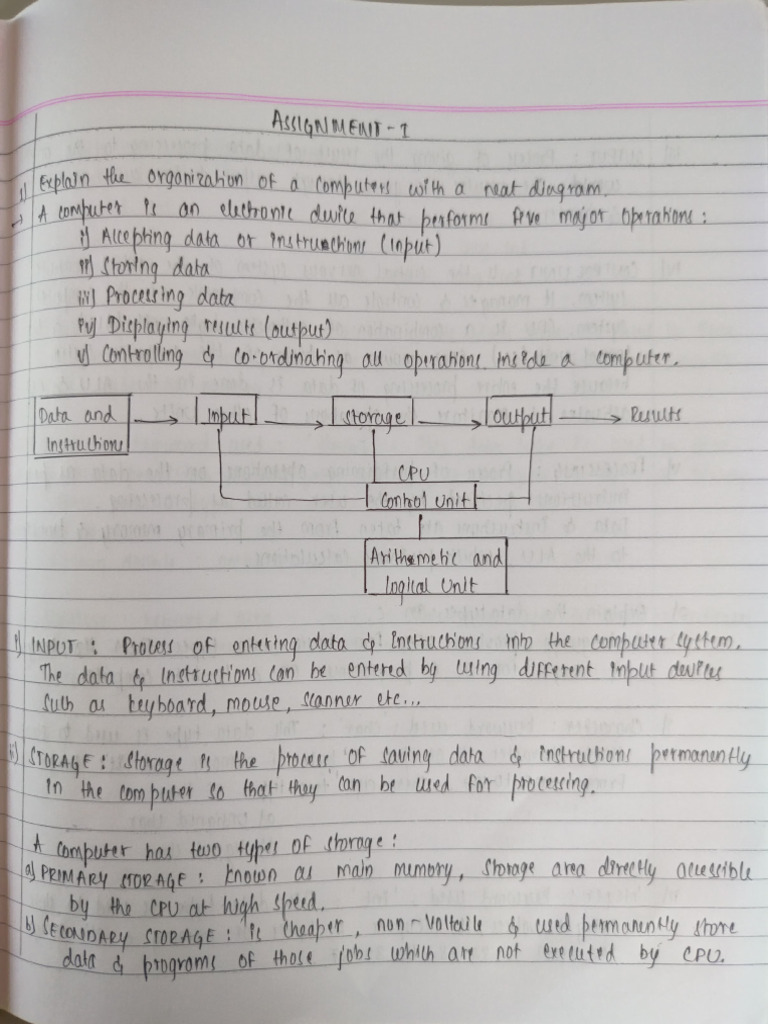 ASSIGNMENT-1
1) Explain the organization of a computers with a neat diagram.
→ A computer is an electronic device that performs five major operations:
i) Accepting data or instrunctions (Input)
ii) Storing data
iii) Processing data
iv) Displaying results (output)
v) Controlling & co-ordinating all operations inside a computer.
Data and Instructions → Input → Storage → Output → Results
CPU
Control unit
Arithmetic and
logical Unit
i) INPUT: Process of entering data & instructions into the computer system.
The data & instructions can be entered by using different input devices
such as keyboard, mouse, scanner etc...
ii) STORAGE: Storage is the process of saving data & instructions permanently
in the computer so that they can be used for processing.
A computer has two types of storage:
a) PRIMARY STORAGE: known as main memory, storage area directly accessible
by the CPU at high speed.
b) SECONDARY STORAGE: is cheaper, non-Voltaile & used permanently store
data & programs of those jobs which are not executed by CPU.